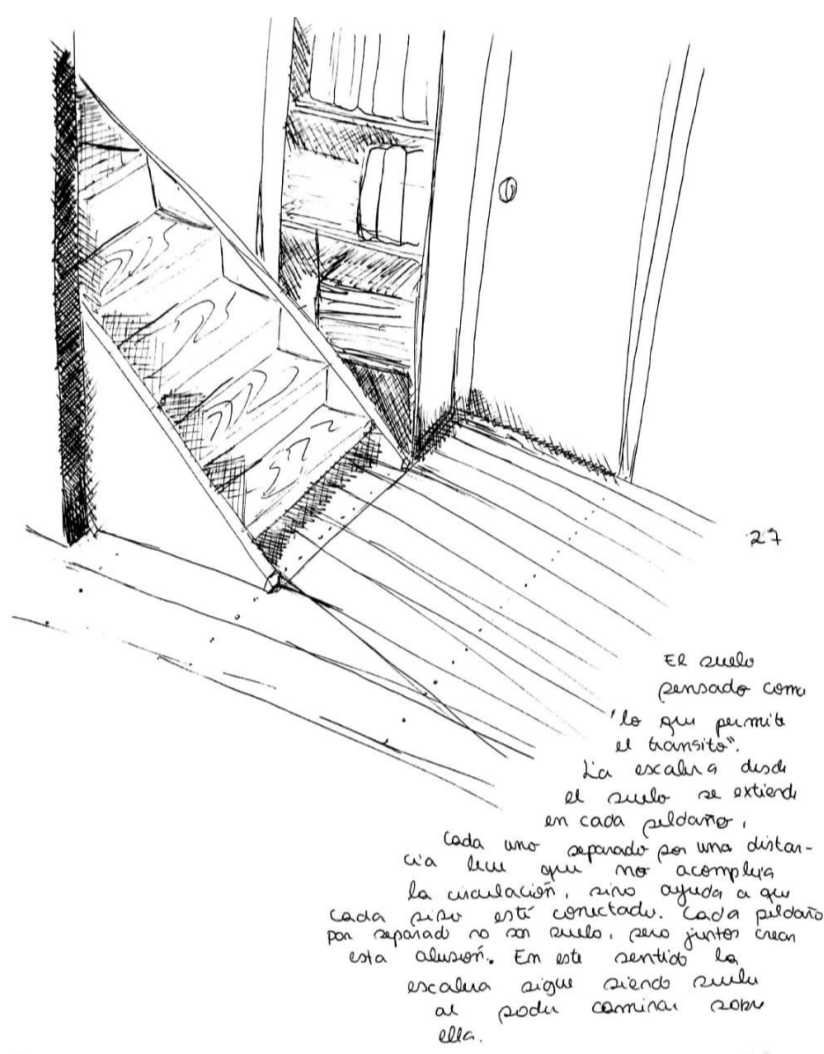 27
El suelo
pensado como
"lo que permite
el transito".
La escalera desde
el suelo se extiende
en cada peldaño,
cada uno separado por una distan-
cia leve que no acompleja
la circulación, sino ayuda a que
cada piso esté conectado. Cada peldaño
por separado no son suelo, pero juntos crean
esta alusión. En este sentido la
escalera sigue siendo suelo
al poder caminar sobre
ella.